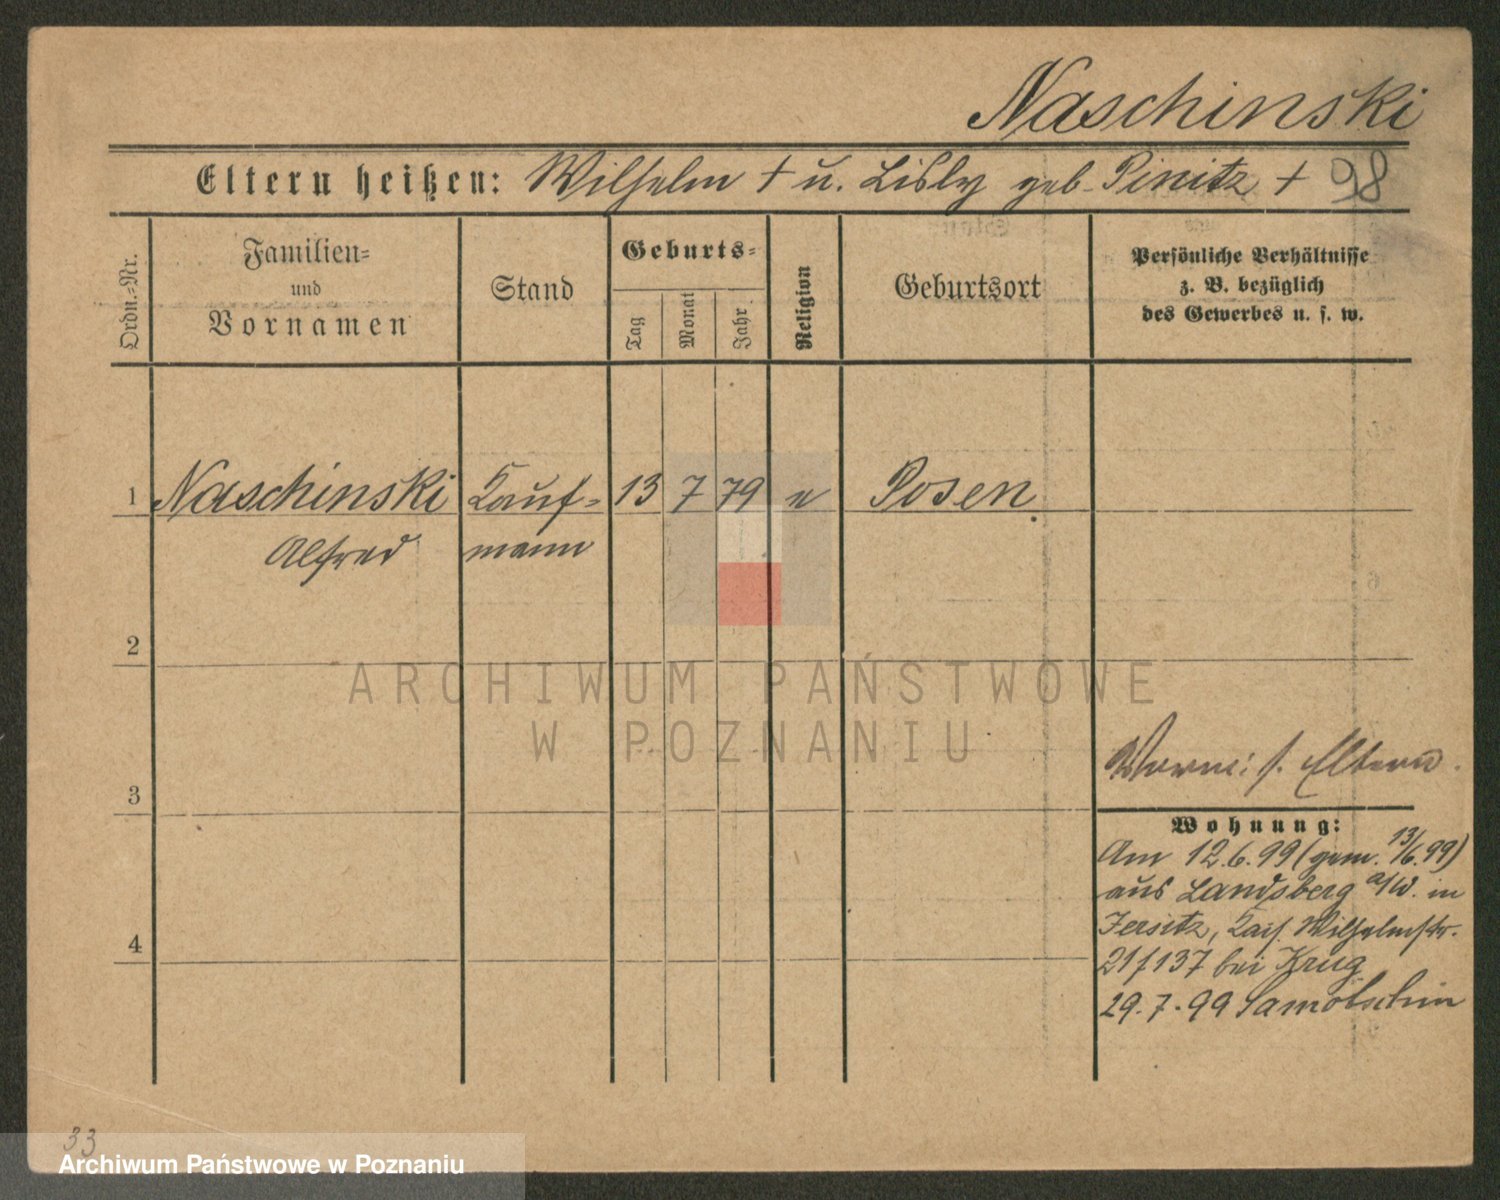 Naschinski
Eltern heißen: Wilhelm † u. Lisly geb. Pinitz † 98
Ordn.-Nr.
Familien-
und
Vornamen
Stand
Geburts-
Tag
Monat
Jahr
Religion
Geburtsort
Persönliche Verhältnisse
z. B. bezüglich
des Gewerbes u. s. w.
1 Naschinski Kauf- 13 7 79 Posen
Alfred mann
2
3
4
s. Eltern.
Wohnung:
Am 12.6.99 (gem. 13/6.99)
aus Landsberg a/W. in
Jersitz, Kais. Wilhelmstr.
21/137 bei Krug
29.7.99 Samotschin
33
ARCHIWUM PAŃSTWOWE
W POZNANIU
Archiwum Państwowe w Poznaniu